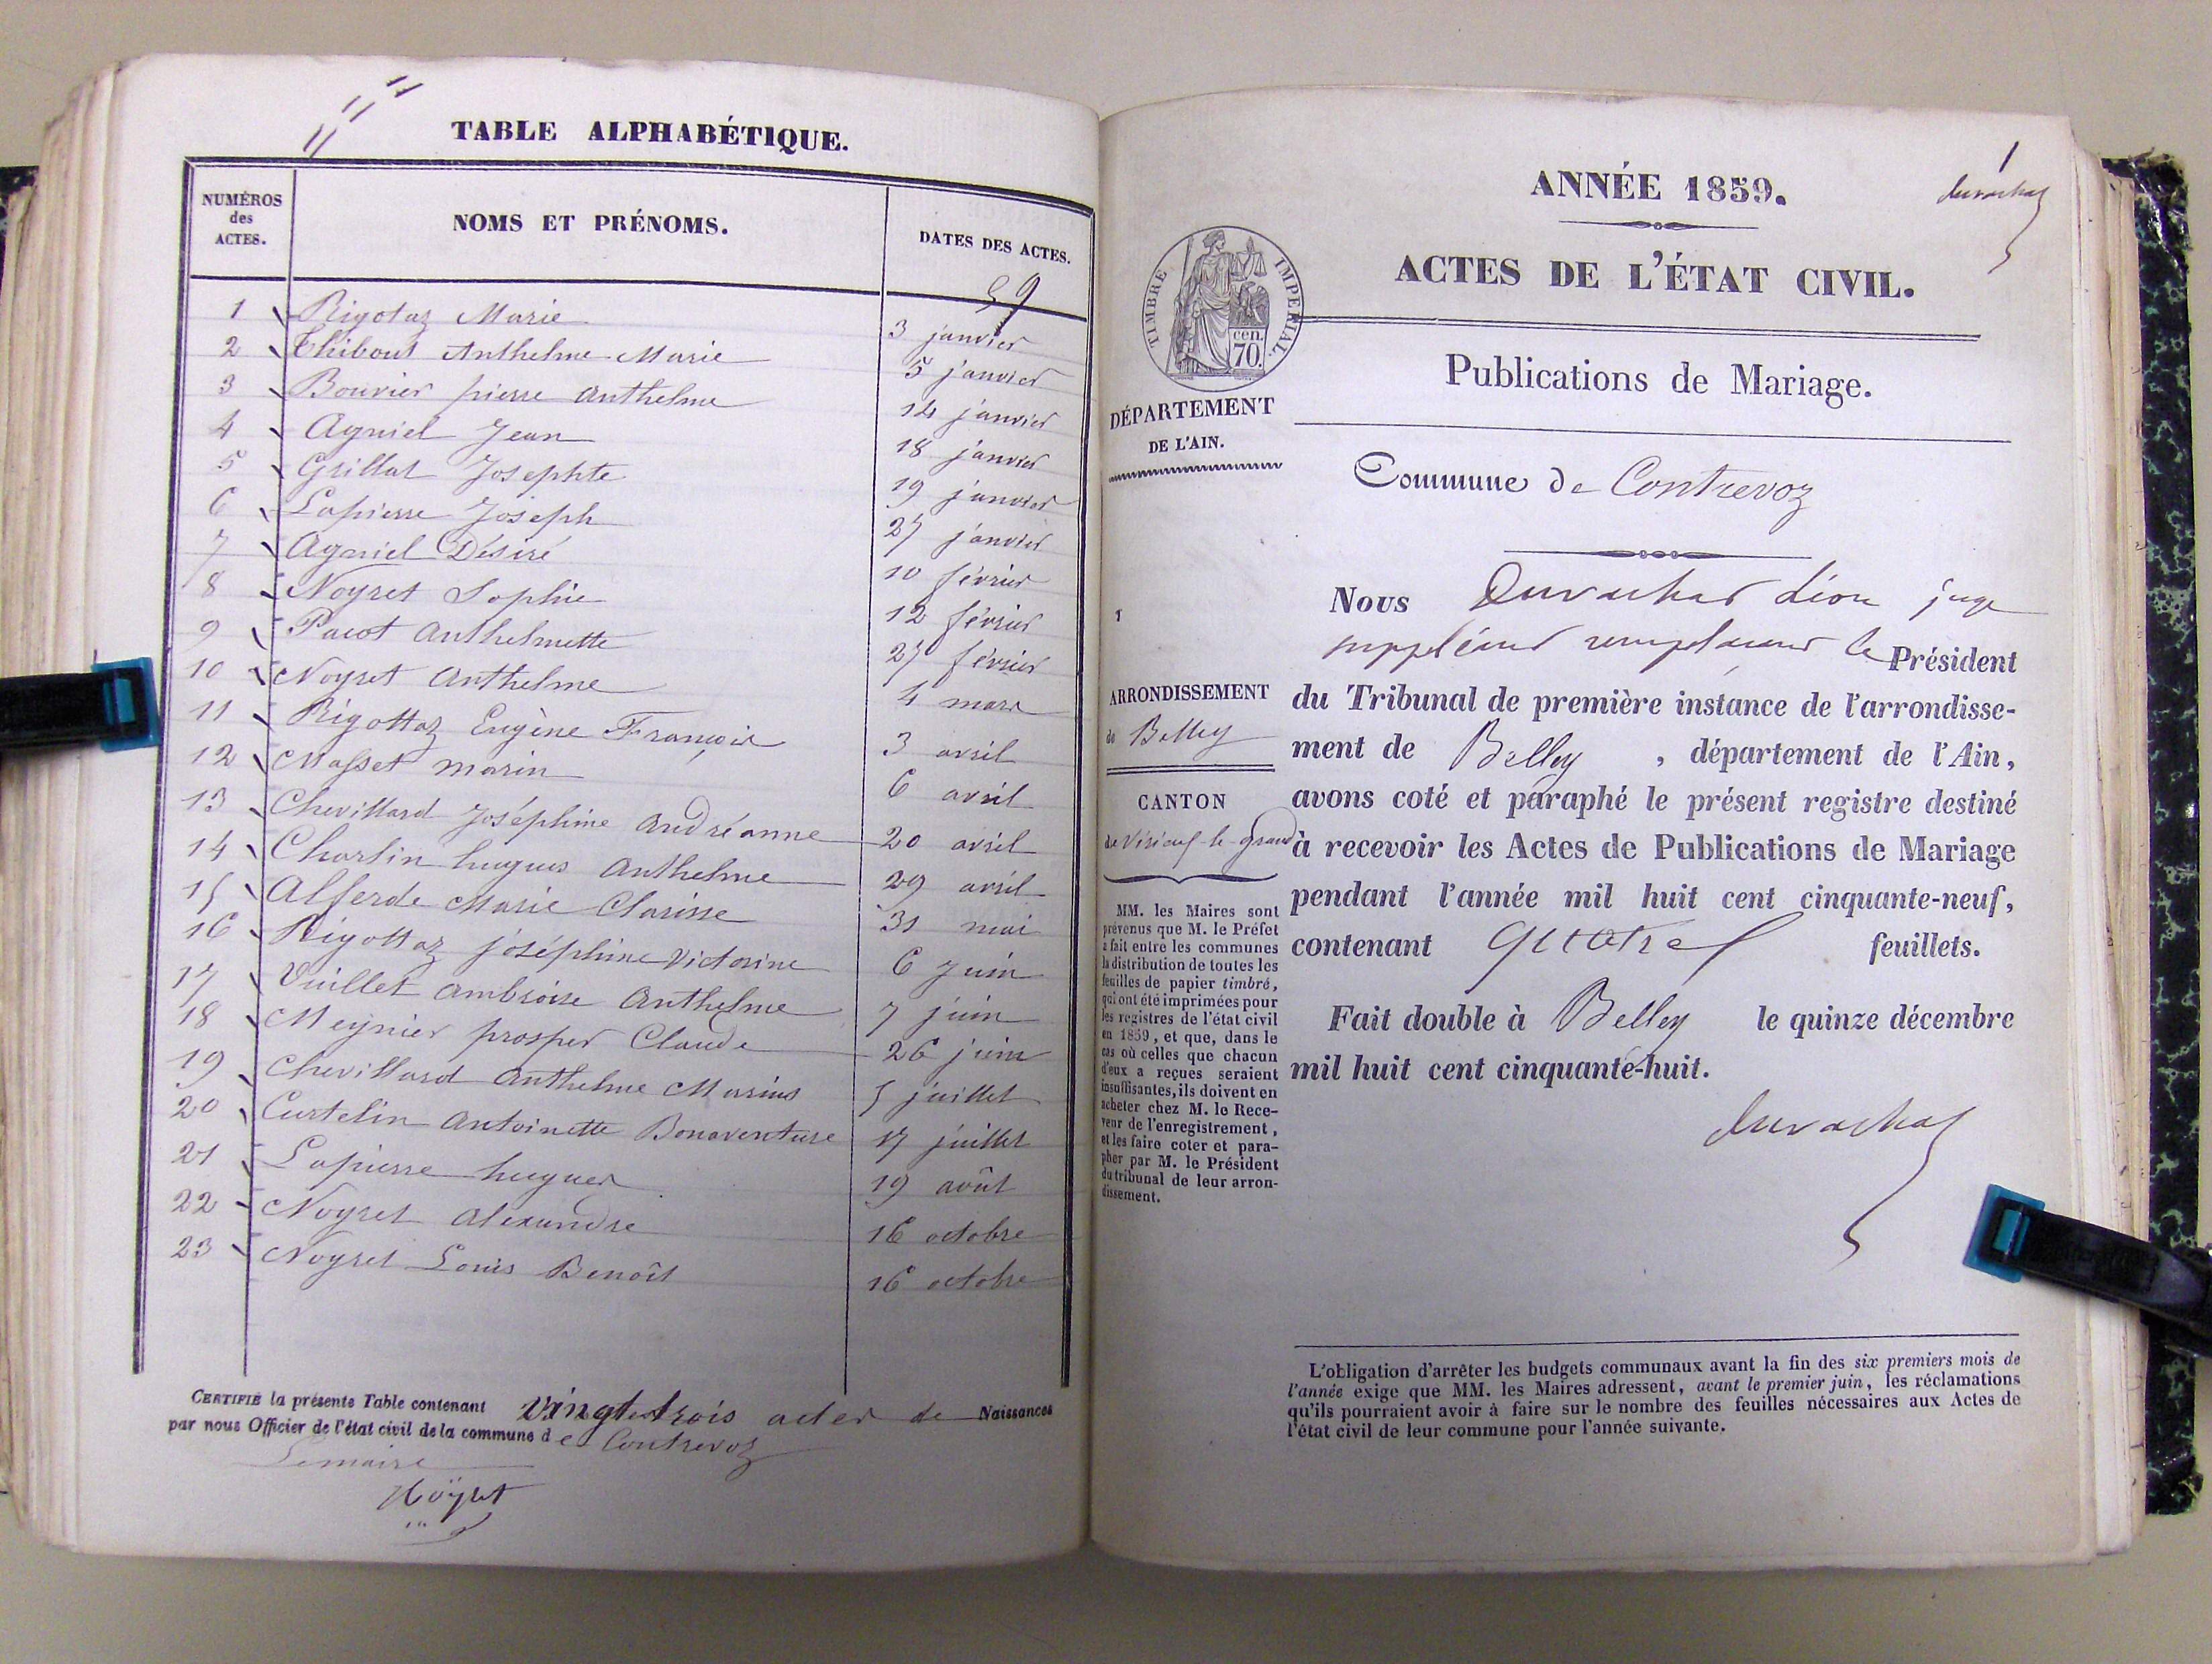 TABLE ALPHABÉTIQUE.
NUMÉROS
des
ACTES.
NOMS ET PRÉNOMS.
DATES DES ACTES.
59
1 Rigotaz Marie 3 janvier
2 Thibout Anthelme Marie 5 janvier
3 Bouvier pierre Anthelme 14 janvier
4 Agniel Jean 18 janvier
5 Grillat Josephte 19 janvier
6 Lapierre Joseph 27 janvier
7 Agniel Désiré 10 février
8 Noyret Sophie 12 février
9 Pacot Anthelmette 27 février
10 Noyret Anthelme 4 mars
11 Rigottaz Eugène François 3 avril
12 Masset marin 6 avril
13 Chevillard Joséphine Andréanne 20 avril
14 Charlin hugues Anthelme 29 avril
15 Alferde Marie Clarisse 31 mai
16 Rigottaz joséphine Victorine 6 Juin
17 Vuillet Ambroise Anthelme 7 juin
18 Meynier prosper Claude 26 juin
19 Chevillard Anthelme Marius 5 juillet
20 Curtelin Antoinette Bonaventure 17 juillet
21 Lapierre hugues 19 août
22 Noyret Alexandre 16 octobre
23 Noyret Louis Benoît 16 octobre
CERTIFIÉ la présente Table contenant vingt trois actes de Naissances
par nous Officier de l'état civil de la commune de Contrevoz
Le maire
Noÿret
1
Duvachat
ANNÉE 1859.
ACTES DE L'ÉTAT CIVIL.
TIMBRE IMPÉRIAL.
cen.
70.
Publications de Mariage.
DÉPARTEMENT
DE L'AIN.
Commune de Contrevoz
Nous Duvachat Léon juge
suppléant remplaçant le Président
du Tribunal de première instance de l'arrondisse-
ment de Belley, département de l'Ain,
avons coté et paraphé le présent registre destiné
à recevoir les Actes de Publications de Mariage
pendant l'année mil huit cent cinquante-neuf,
contenant quatre feuillets.
Fait double à Belley le quinze décembre
mil huit cent cinquante-huit.
Duvachat
1
ARRONDISSEMENT
de Belley
CANTON
de Virieu-le-grand
MM. les Maires sont
prévenus que M. le Préfet
a fait entre les communes
la distribution de toutes les
feuilles de papier timbré,
qui ont été imprimées pour
les registres de l'état civil
en 1859, et que, dans le
cas où celles que chacun
d'eux a reçues seraient
insuffisantes, ils doivent en
acheter chez M. le Rece-
veur de l'enregistrement,
et les faire coter et para-
pher par M. le Président
du tribunal de leur arron-
dissement.
L'obligation d'arrêter les budgets communaux avant la fin des six premiers mois de
l'année exige que MM. les Maires adressent, avant le premier juin, les réclamations
qu'ils pourraient avoir à faire sur le nombre des feuilles nécessaires aux Actes de
l'état civil de leur commune pour l'année suivante.